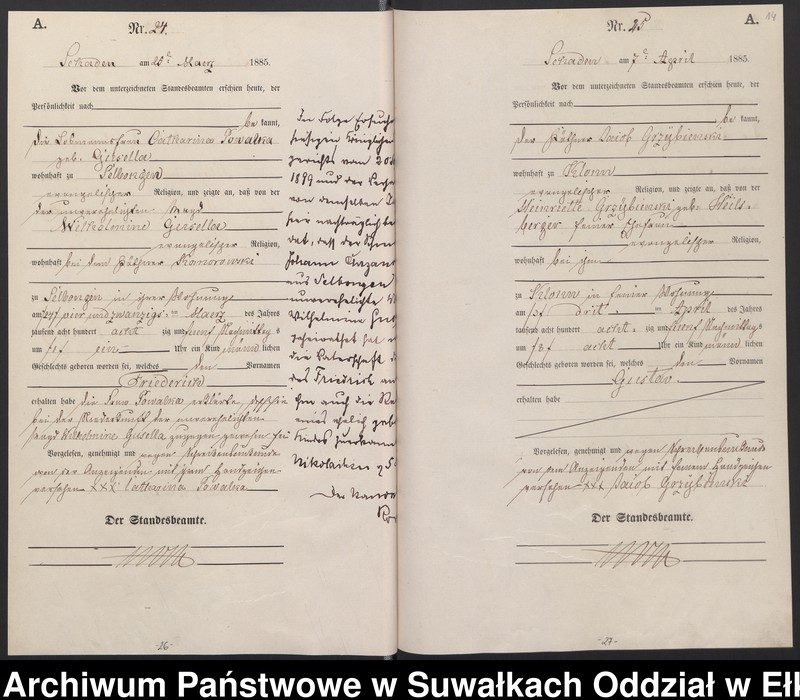 A.
Nr. 24.
Schaden am 25ᵗᵉⁿ Maerz 1885.
Vor dem unterzeichneten Standesbeamten erschien heute, der
Persönlichkeit nach
be kannt,
die Losmannsfrau Catharina Sowalka
geb. Gisella
wohnhaft zu Selbongen
evangelischer Religion, und zeigte an, daß von der
der unverehelichten Magd
Wilhelmine Gisella
evangelischer Religion,
wohnhaft bei dem Käthner Komorowski
zu Selbongen in ihrer Wohnung
am vier und zwanzigs ten Maerz des Jahres
tausend acht hundert acht zig und fuenf Nachmittags
um ein Uhr ein Kind männ lichen
Geschlechts geboren worden sei, welches den Vornamen
Friedrich
erhalten habe die Frau Sowalka erklärte, daß sie
bei der Niederkunft der unverehelichten
Magd Wilhelmine Gisella zugegen gewesen sei
Vorgelesen, genehmigt und wegen Schreibensunkunde
von der Anzeigenden mit ihrem Handzeichen
versehen XXX Catharina Sowalka
Der Standesbeamte.
-16-
In Folge Ersuche
Königlichen
gerichts vom 20
1899 und der
von demselben
hier nachträglich
dat, daß der
Johann
aus Selbongen
unverehelichte
Wilhelmine
geheirathet hat
die Vaterschaft
des Friedrich an
ihm auch die Re
eines ehelich geb
Kindes zuerkann
Nikolaiken 25
Der
A. 14
Nr. 25
Schaden am 7ᵗᵉⁿ April 1885.
Vor dem unterzeichneten Standesbeamten erschien heute, der
Persönlichkeit nach
be kannt,
der Käthner Jacob Grzybiewski
wohnhaft zu Klonn
evangelischer Religion, und zeigte an, daß von der
Heinriette Grzybiewski geb. Heils-
berger seiner Ehefrau
evangelischer Religion,
wohnhaft bei ihm
zu Klonn in seiner Wohnung
am drit ten April des Jahres
tausend acht hundert acht zig und fuenf Nachmittags
um acht Uhr ein Kind männ lichen
Geschlechts geboren worden sei, welches den Vornamen
Gustav
erhalten habe
Vorgelesen, genehmigt und wegen Schreibensunkunde
von dem Anzeigenden mit seinem Handzeichen
versehen XXX Jacob Grzybiewski
Der Standesbeamte.
-27-
Archiwum Państwowe w Suwałkach Oddział w Eł